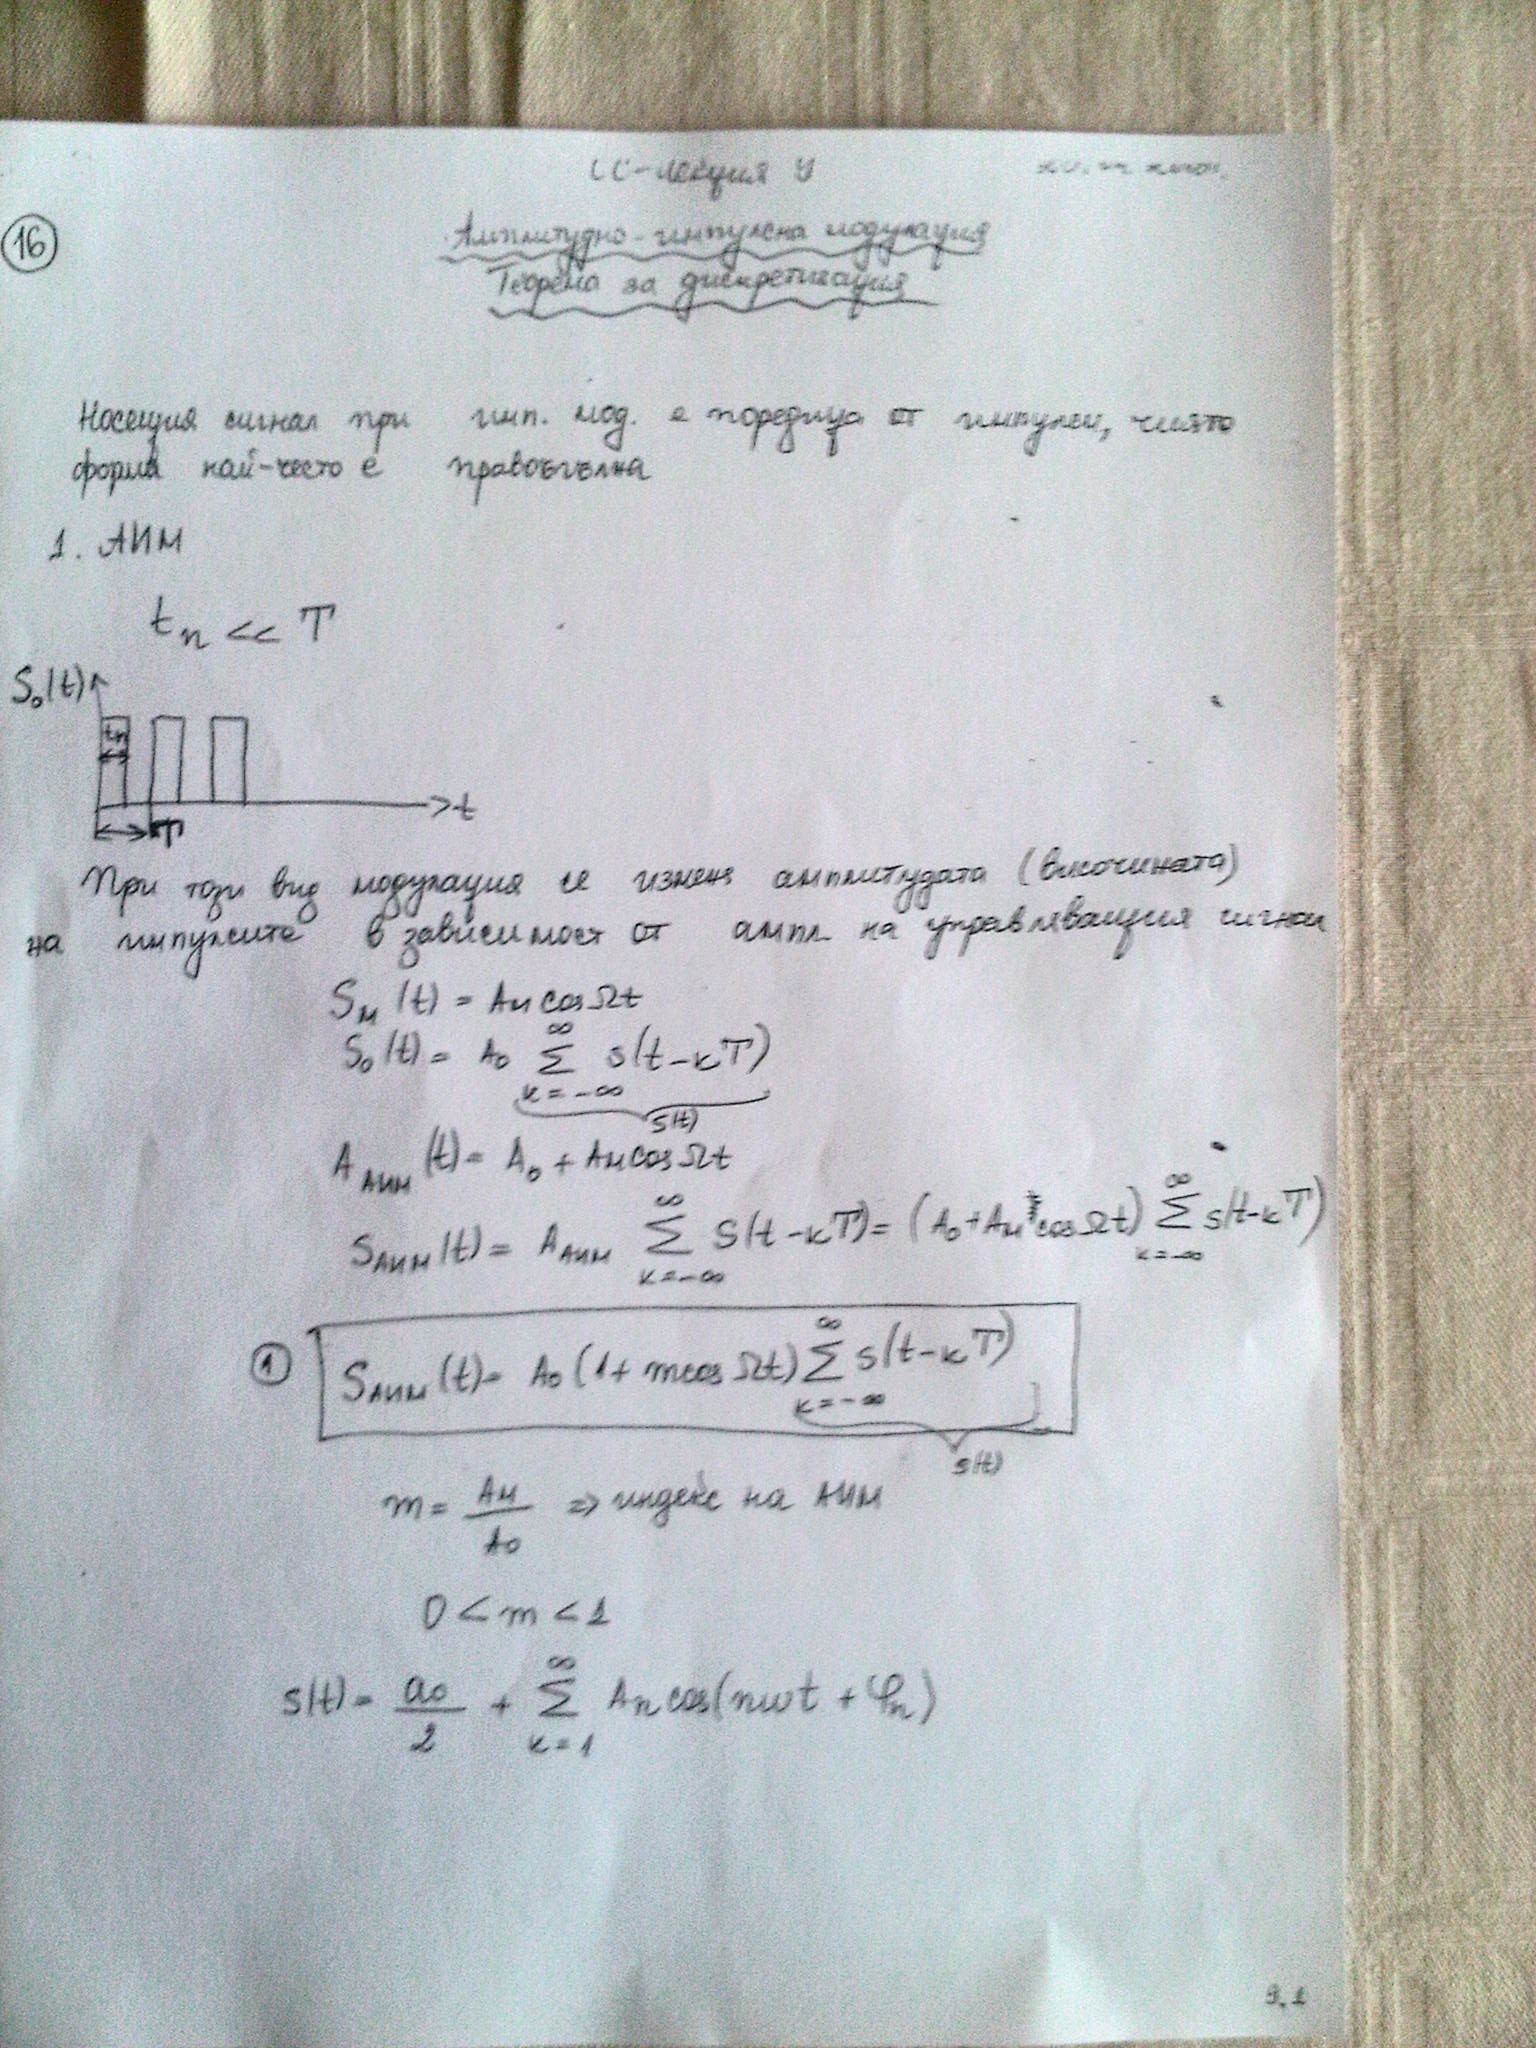 СС-лекция 9
16
Амплитудно-импулсна модулация
Теорема за дискретизация
Носещия сигнал при имп. мод. е поредица от импулси, чиято
форма най-често е правоъгълна
1. АИМ
tи << T
S₀(t)
tи
t
T
При този вид модулация се изменя амплитудата (височината)
на импулсите в зависимост от ампл на управляващия сигнал
Sм(t) = Aм cos Ωt
S₀(t) = A₀ ∑_{k=-∞}^{∞} s(t-kT)
s(t)
Aаим(t) = A₀ + Aм cos Ωt
Sаим(t) = Aаим ∑_{k=-∞}^{∞} s(t-kT) = (A₀ + Aм cos Ωt) ∑_{k=-∞}^{∞} s(t-kT)
1 Sаим(t) = A₀ (1 + m cos Ωt) ∑_{k=-∞}^{∞} s(t-kT)
s(t)
m = Aм / A₀ => индекс на АИМ
0 < m < 1
s(t) = a₀ / 2 + ∑_{k=1}^{∞} Aₙ cos(nωt + φₙ)
9.1